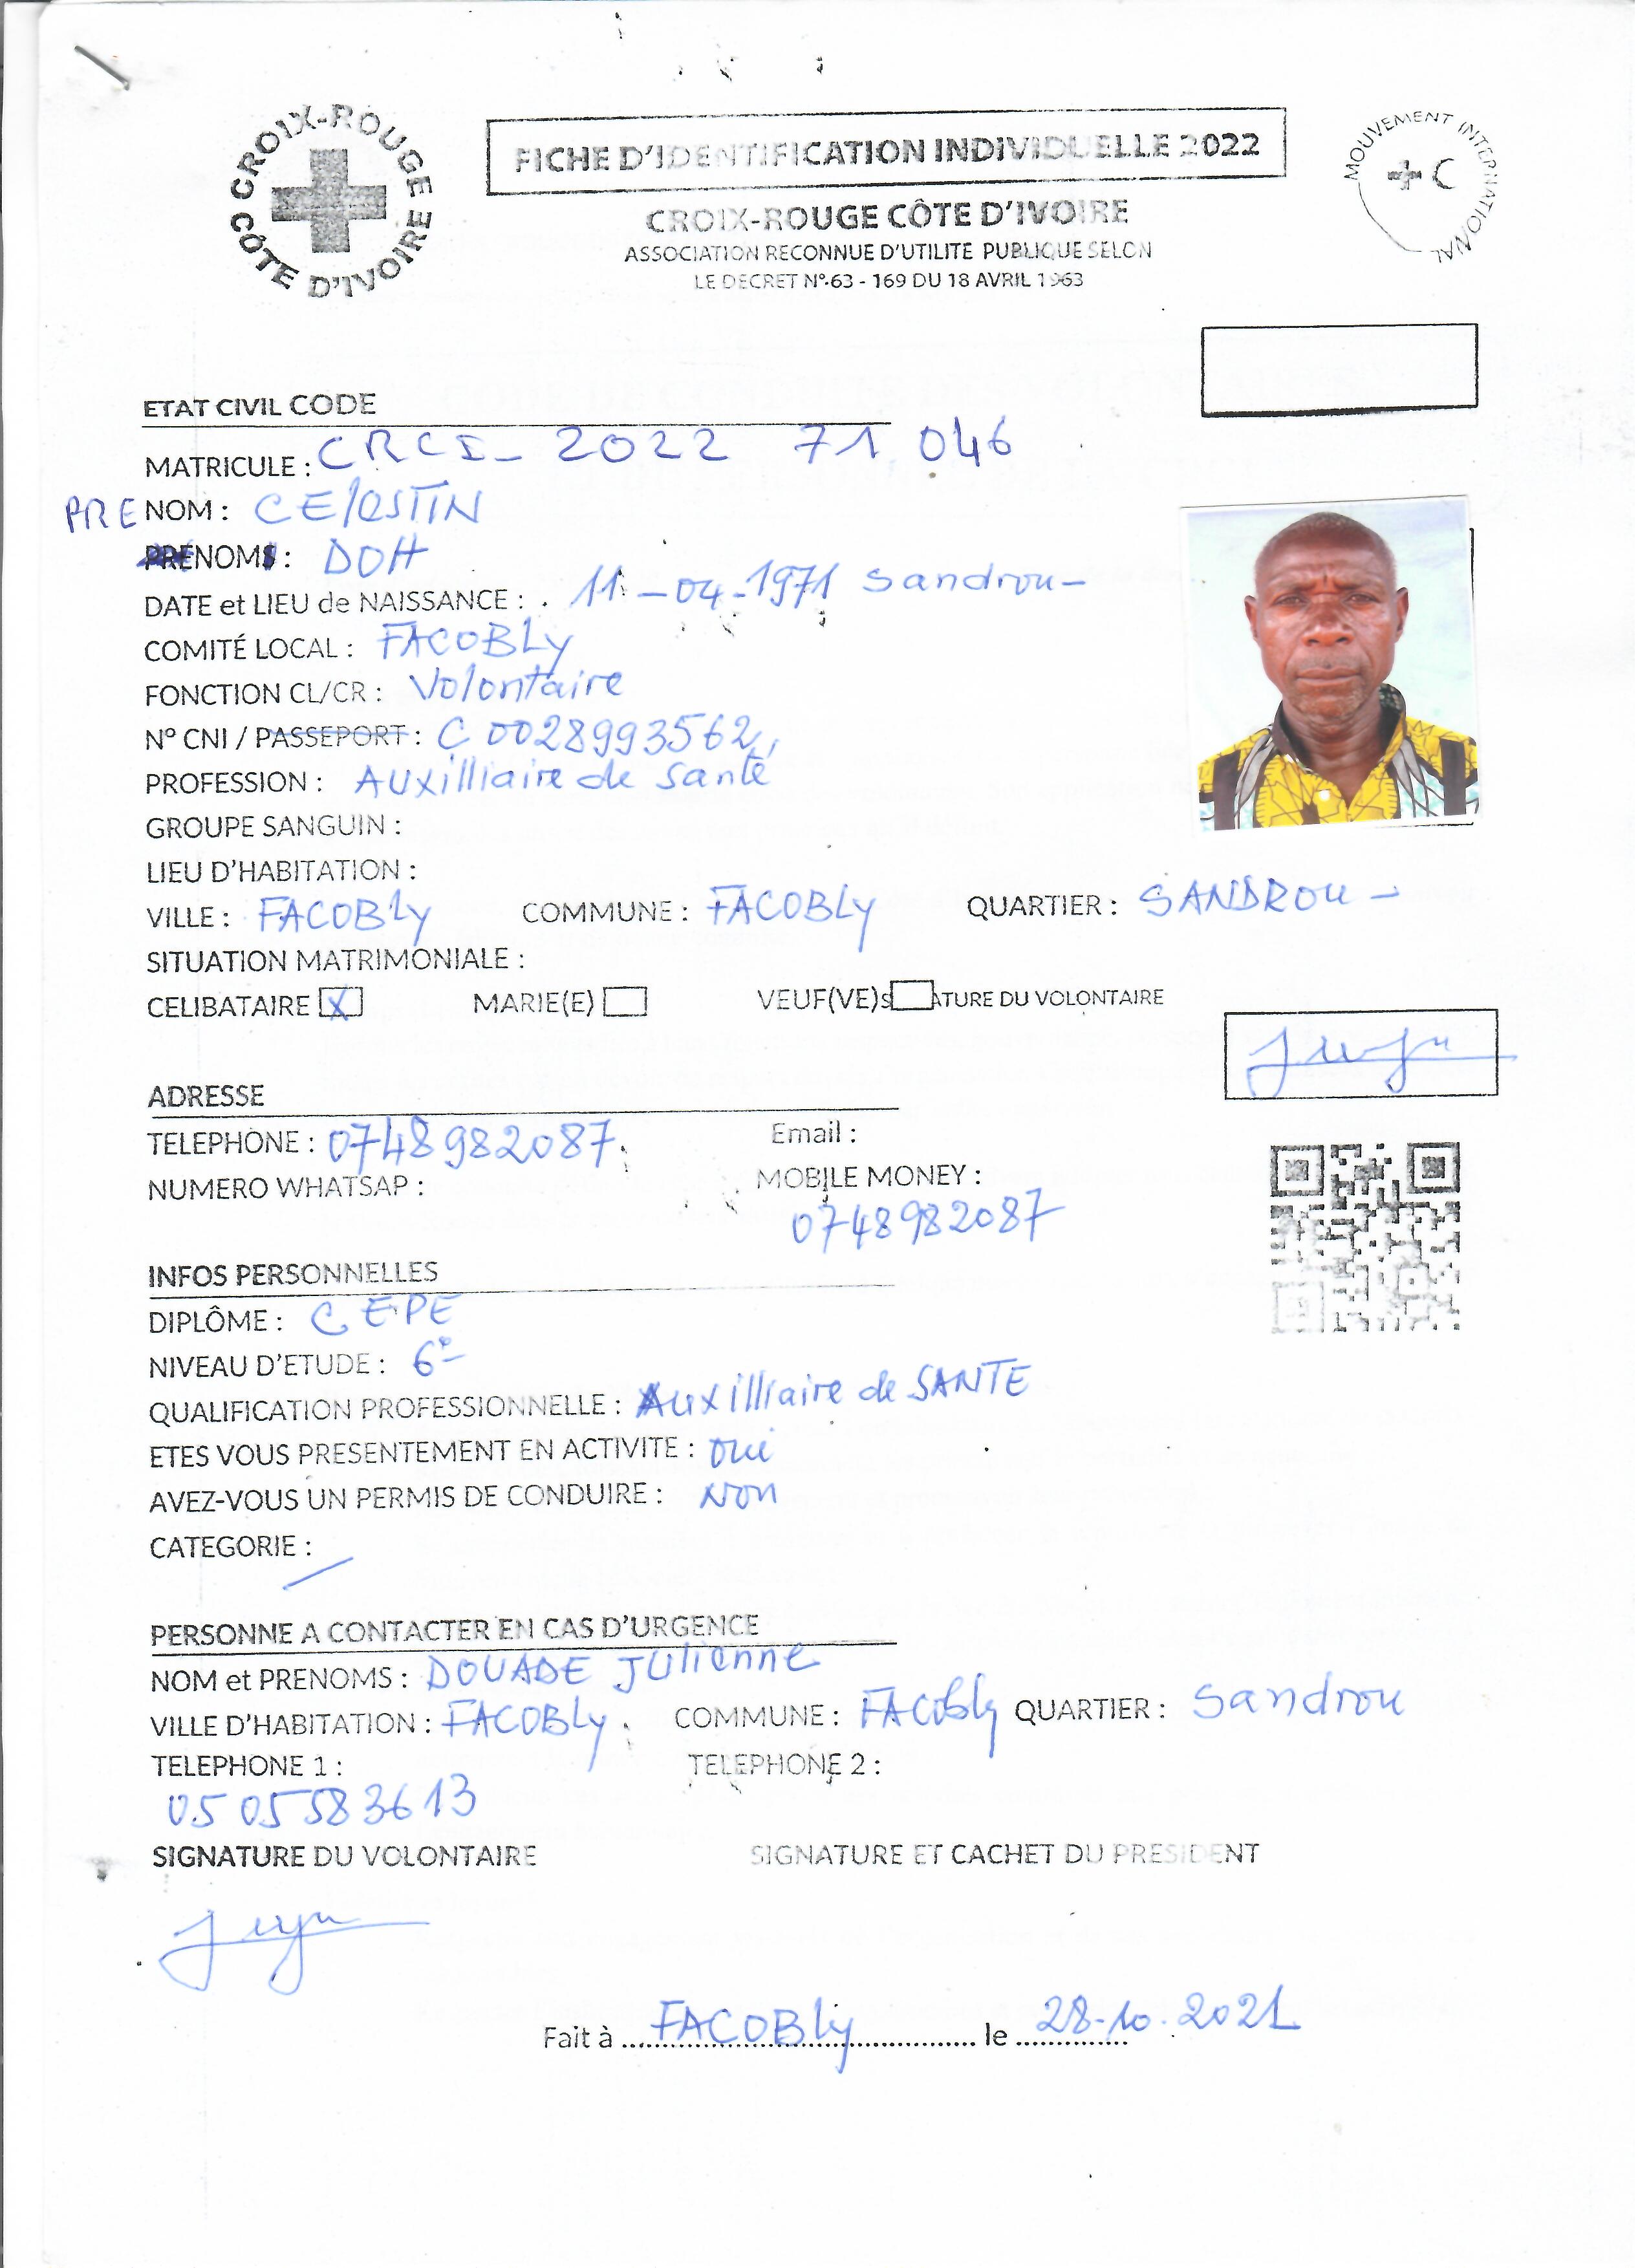 CROIX-ROUGE CÔTE D'IVOIRE
FICHE D'IDENTIFICATION INDIVIDUELLE 2022
MOUVEMENT INTERNATIONAL
CROIX-ROUGE CÔTE D'IVOIRE
ASSOCIATION RECONNUE D'UTILITE PUBLIQUE SELON
LE DECRET N°-63 - 169 DU 18 AVRIL 1963
ETAT CIVIL CODE
MATRICULE : CRCI_ 2022 71 046
PRENOM : CElestIN
PRENOMS : DOH
DATE et LIEU de NAISSANCE : 11-04-1971 Sandrou-
COMITÉ LOCAL : FACOBLy
FONCTION CL/CR : Volontaire
N° CNI / PASSEPORT : C 0028993562
PROFESSION : AUxilliaire de Santé
GROUPE SANGUIN :
LIEU D'HABITATION :
VILLE : FACOBLy COMMUNE : FACOBLy QUARTIER : SANDROU -
SITUATION MATRIMONIALE :
CELIBATAIRE X MARIE(E) VEUF(VE) S ATURE DU VOLONTAIRE
ADRESSE
TELEPHONE : 0748982087 Email :
NUMERO WHATSAP : MOBILE MONEY :
0748982087
INFOS PERSONNELLES
DIPLÔME : CEPE
NIVEAU D'ETUDE : 6e
QUALIFICATION PROFESSIONNELLE : Auxilliaire de SANTE
ETES VOUS PRESENTEMENT EN ACTIVITE : oui
AVEZ-VOUS UN PERMIS DE CONDUIRE : NON
CATEGORIE : /
PERSONNE A CONTACTER EN CAS D'URGENCE
NOM et PRENOMS : DOUADE Julienne
VILLE D'HABITATION : FACOBLy COMMUNE : FACobly QUARTIER : Sandrou
TELEPHONE 1 : TELEPHONE 2 :
05 05583613
SIGNATURE DU VOLONTAIRE SIGNATURE ET CACHET DU PRESIDENT
Fait à FACOBLy le 28-10.2021